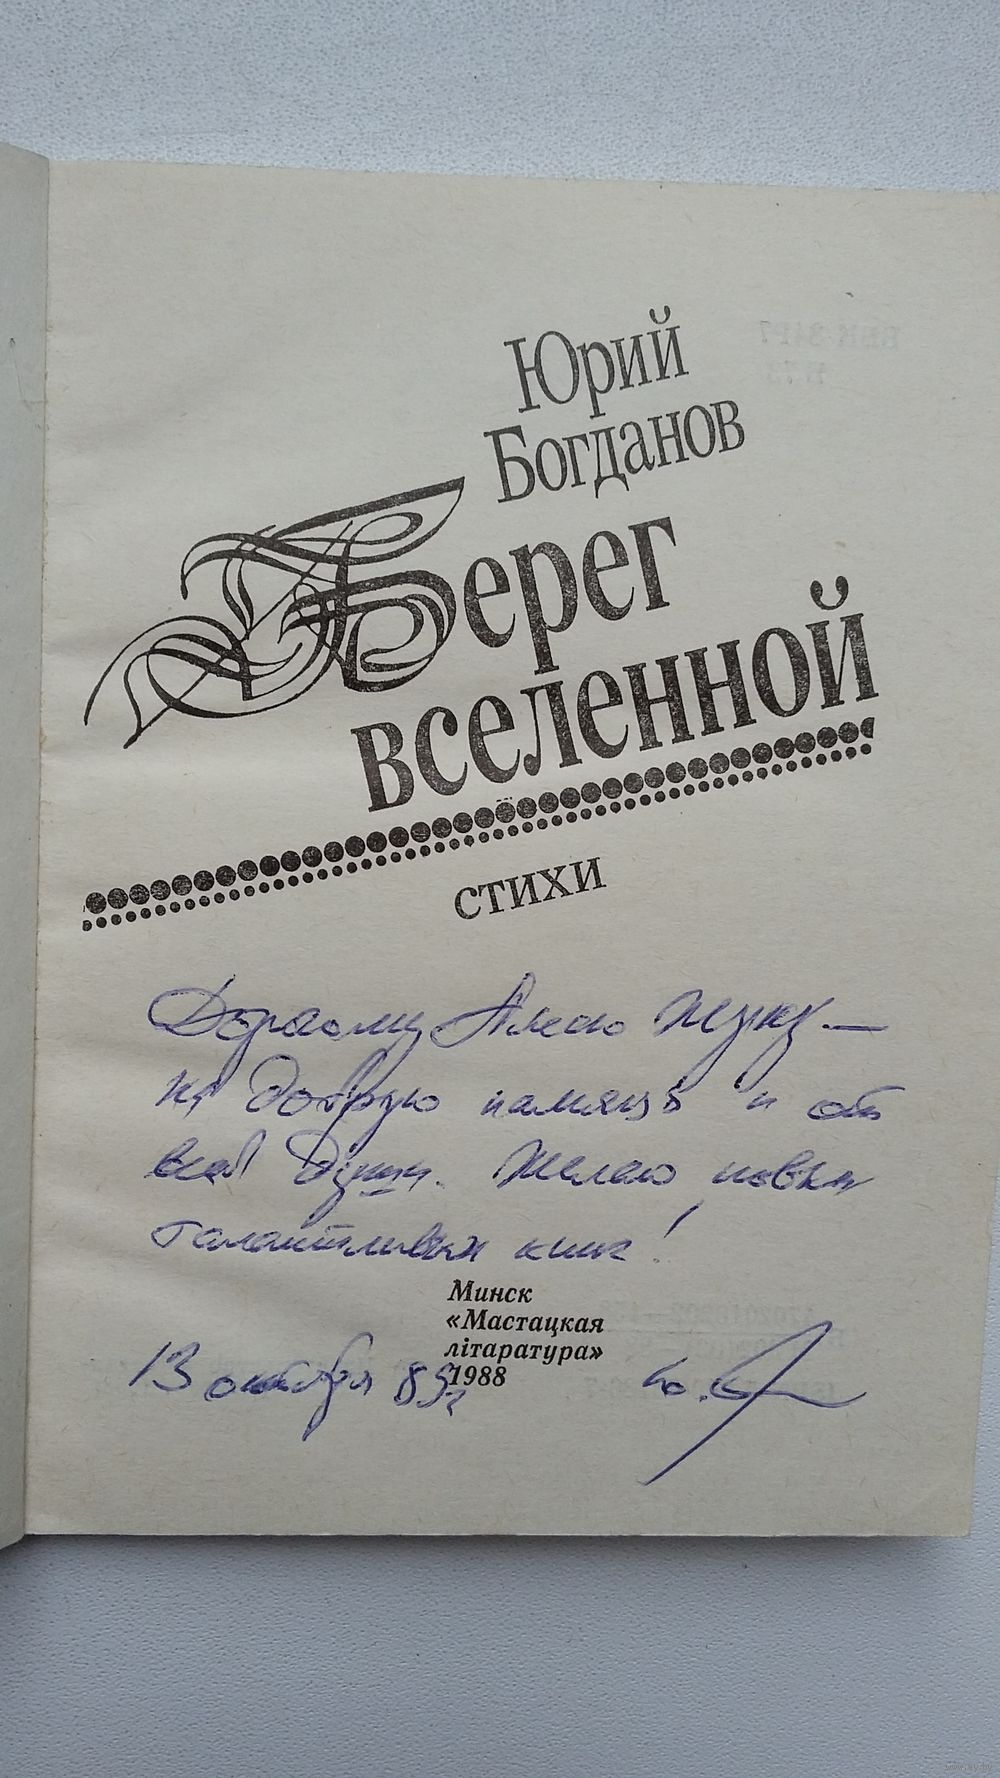 Юрий
Богданов
Берег
вселенной
стихи
Дорогому Алесю Жуку —
на добрую память и от
всей души. Желаю новых
талантливых книг!
Минск
«Мастацкая
літаратура»
1988
13 октября 89г
Ю.